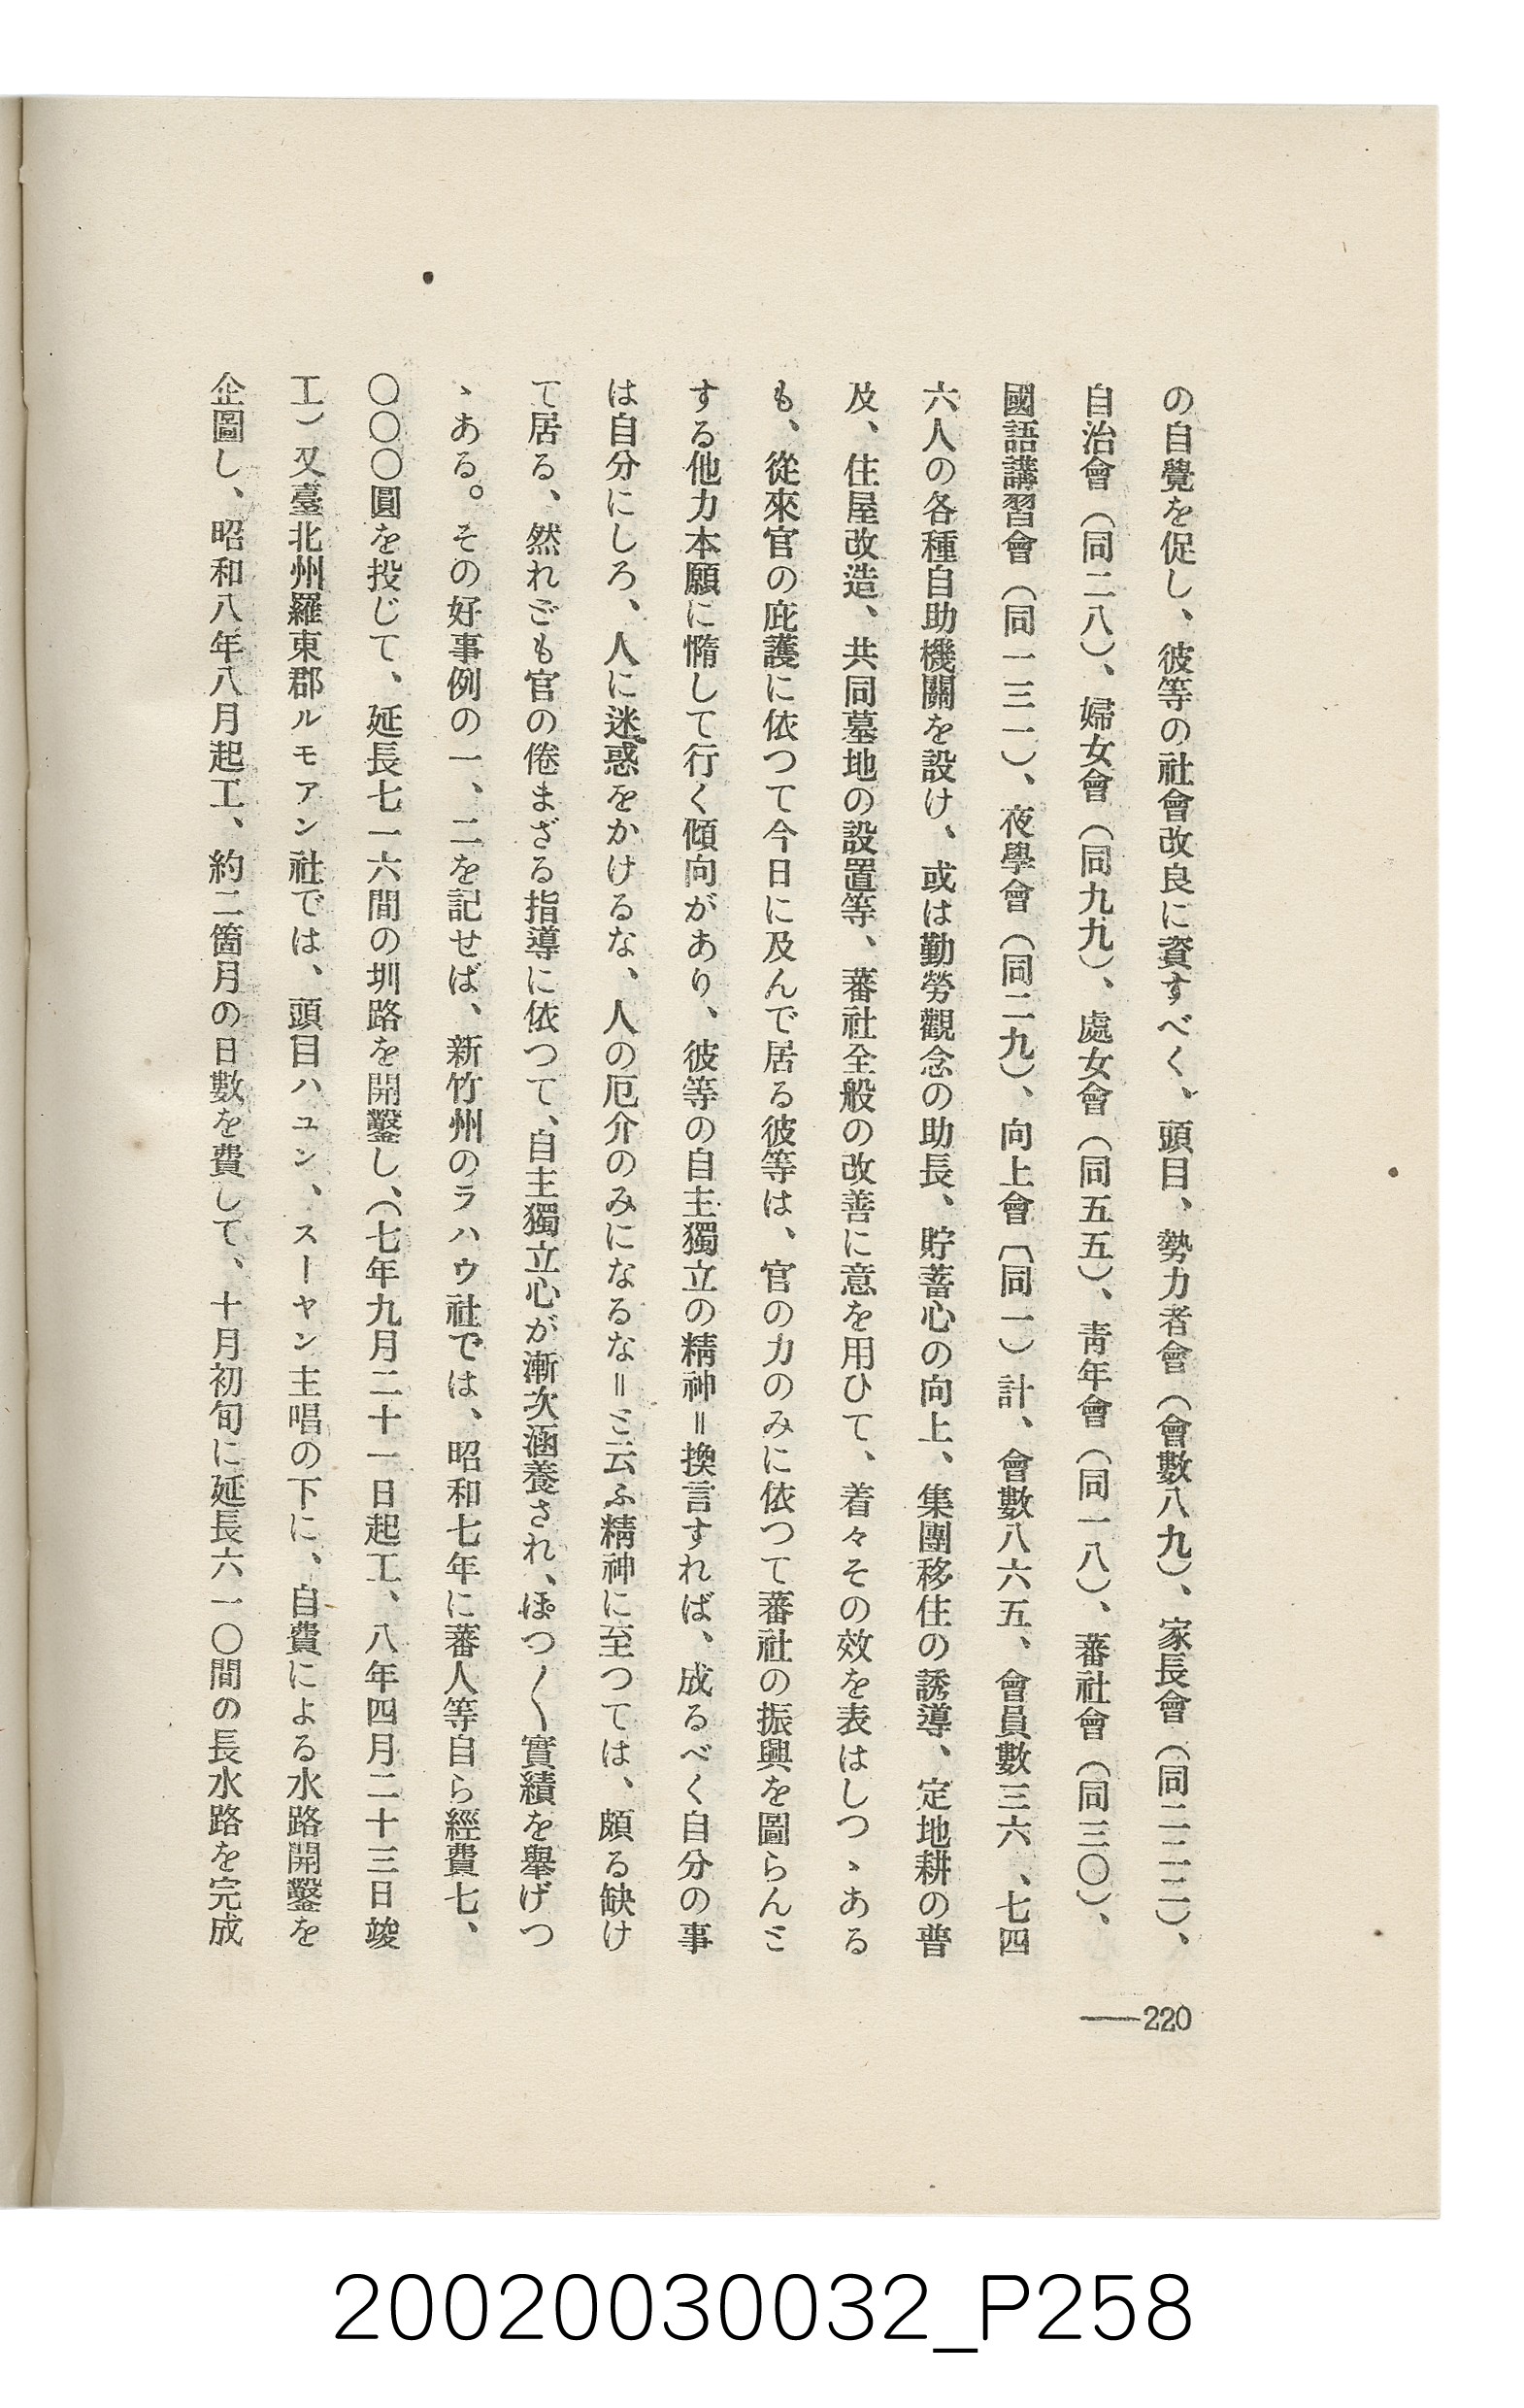 の自覺を促し、彼等の社會改良に資すべく、頭目、勢力者會（會數八九）、家長會（同二二二）、
自治會（同二八）、婦女會（同九九）、處女會（同五五）、靑年會（同一八）、蕃社會（同三〇）、
國語講習會（同一三一）、夜學會（同二九）、向上會〔同一）計、會數八六五、會員數三六、七四
六人の各種自助機關を設け、或は勤勞觀念の助長、貯蓄心の向上、集團移住の誘導、定地耕の普
及、住屋改造、共同墓地の設置等、蕃社全般の改善に意を用ひて、着々その效を表はしつゝある
も、從來官の庇護に依つて今日に及んで居る彼等は、官の力のみに依つて蕃社の振興を圖らんと
する他力本願に惰して行く傾向があり、彼等の自主獨立の精神＝換言すれば、成るべく自分の事
は自分にしろ、人に迷惑をかけるな、人の厄介のみになるな＝と云ふ精神に至つては、頗る缺け
て居る、然れども官の倦まざる指導に依つて、自主獨立心が漸次涵養され、ぽつ〳〵實績を舉げつ
ゝある。その好事例の一、二を記せば、新竹州のラハウ社では、昭和七年に蕃人等自ら經費七、
〇〇〇圓を投じて、延長七一六間の圳路を開鑿し、（七年九月二十一日起工、八年四月二十三日竣
工）又臺北州羅東郡ルモアン社では、頭目ハユン、スーヤン主唱の下に、自費による水路開鑿を
企圖し、昭和八年八月起工、約二箇月の日數を費して、十月初旬に延長六一〇間の長水路を完成
——220
20020030032_P258